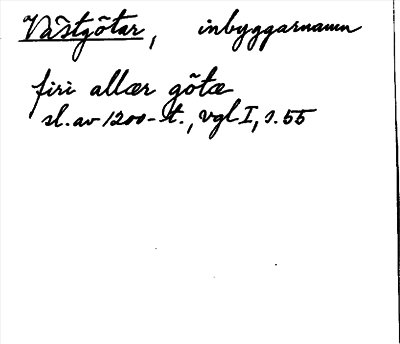 Västgötar, inbyggarnamn
firi allær götæ
sl. av 1200-t., vgl I, s. 55